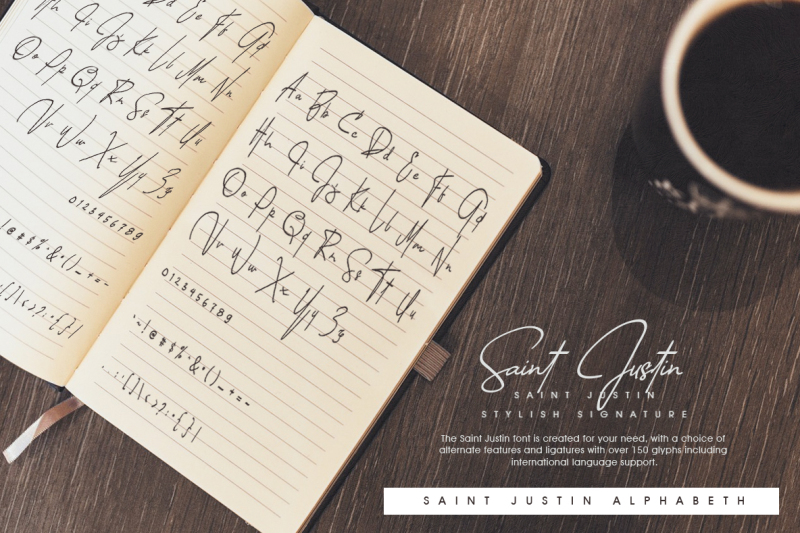 Hh Ii Jj Kk Ll Mm Nn
Oo Pp Qq Rr Ss Tt Uu
Vv Ww Xx Yy Zz
0123456789
Aa Bb Cc Dd Ee Ff Gg
Hh Ii Jj Kk Ll Mm Nn
Oo Pp Qq Rr Ss Tt Uu
Vv Ww Xx Yy Zz
0123456789
`~!@#$%^&*()_-+=
Saint Justin
SAINT JUSTIN
STYLISH SIGNATURE
The Saint Justin font is created for your need, with a choice of
alternate features and ligatures with over 150 glyphs including
international language support.
SAINT JUSTIN ALPHABETH